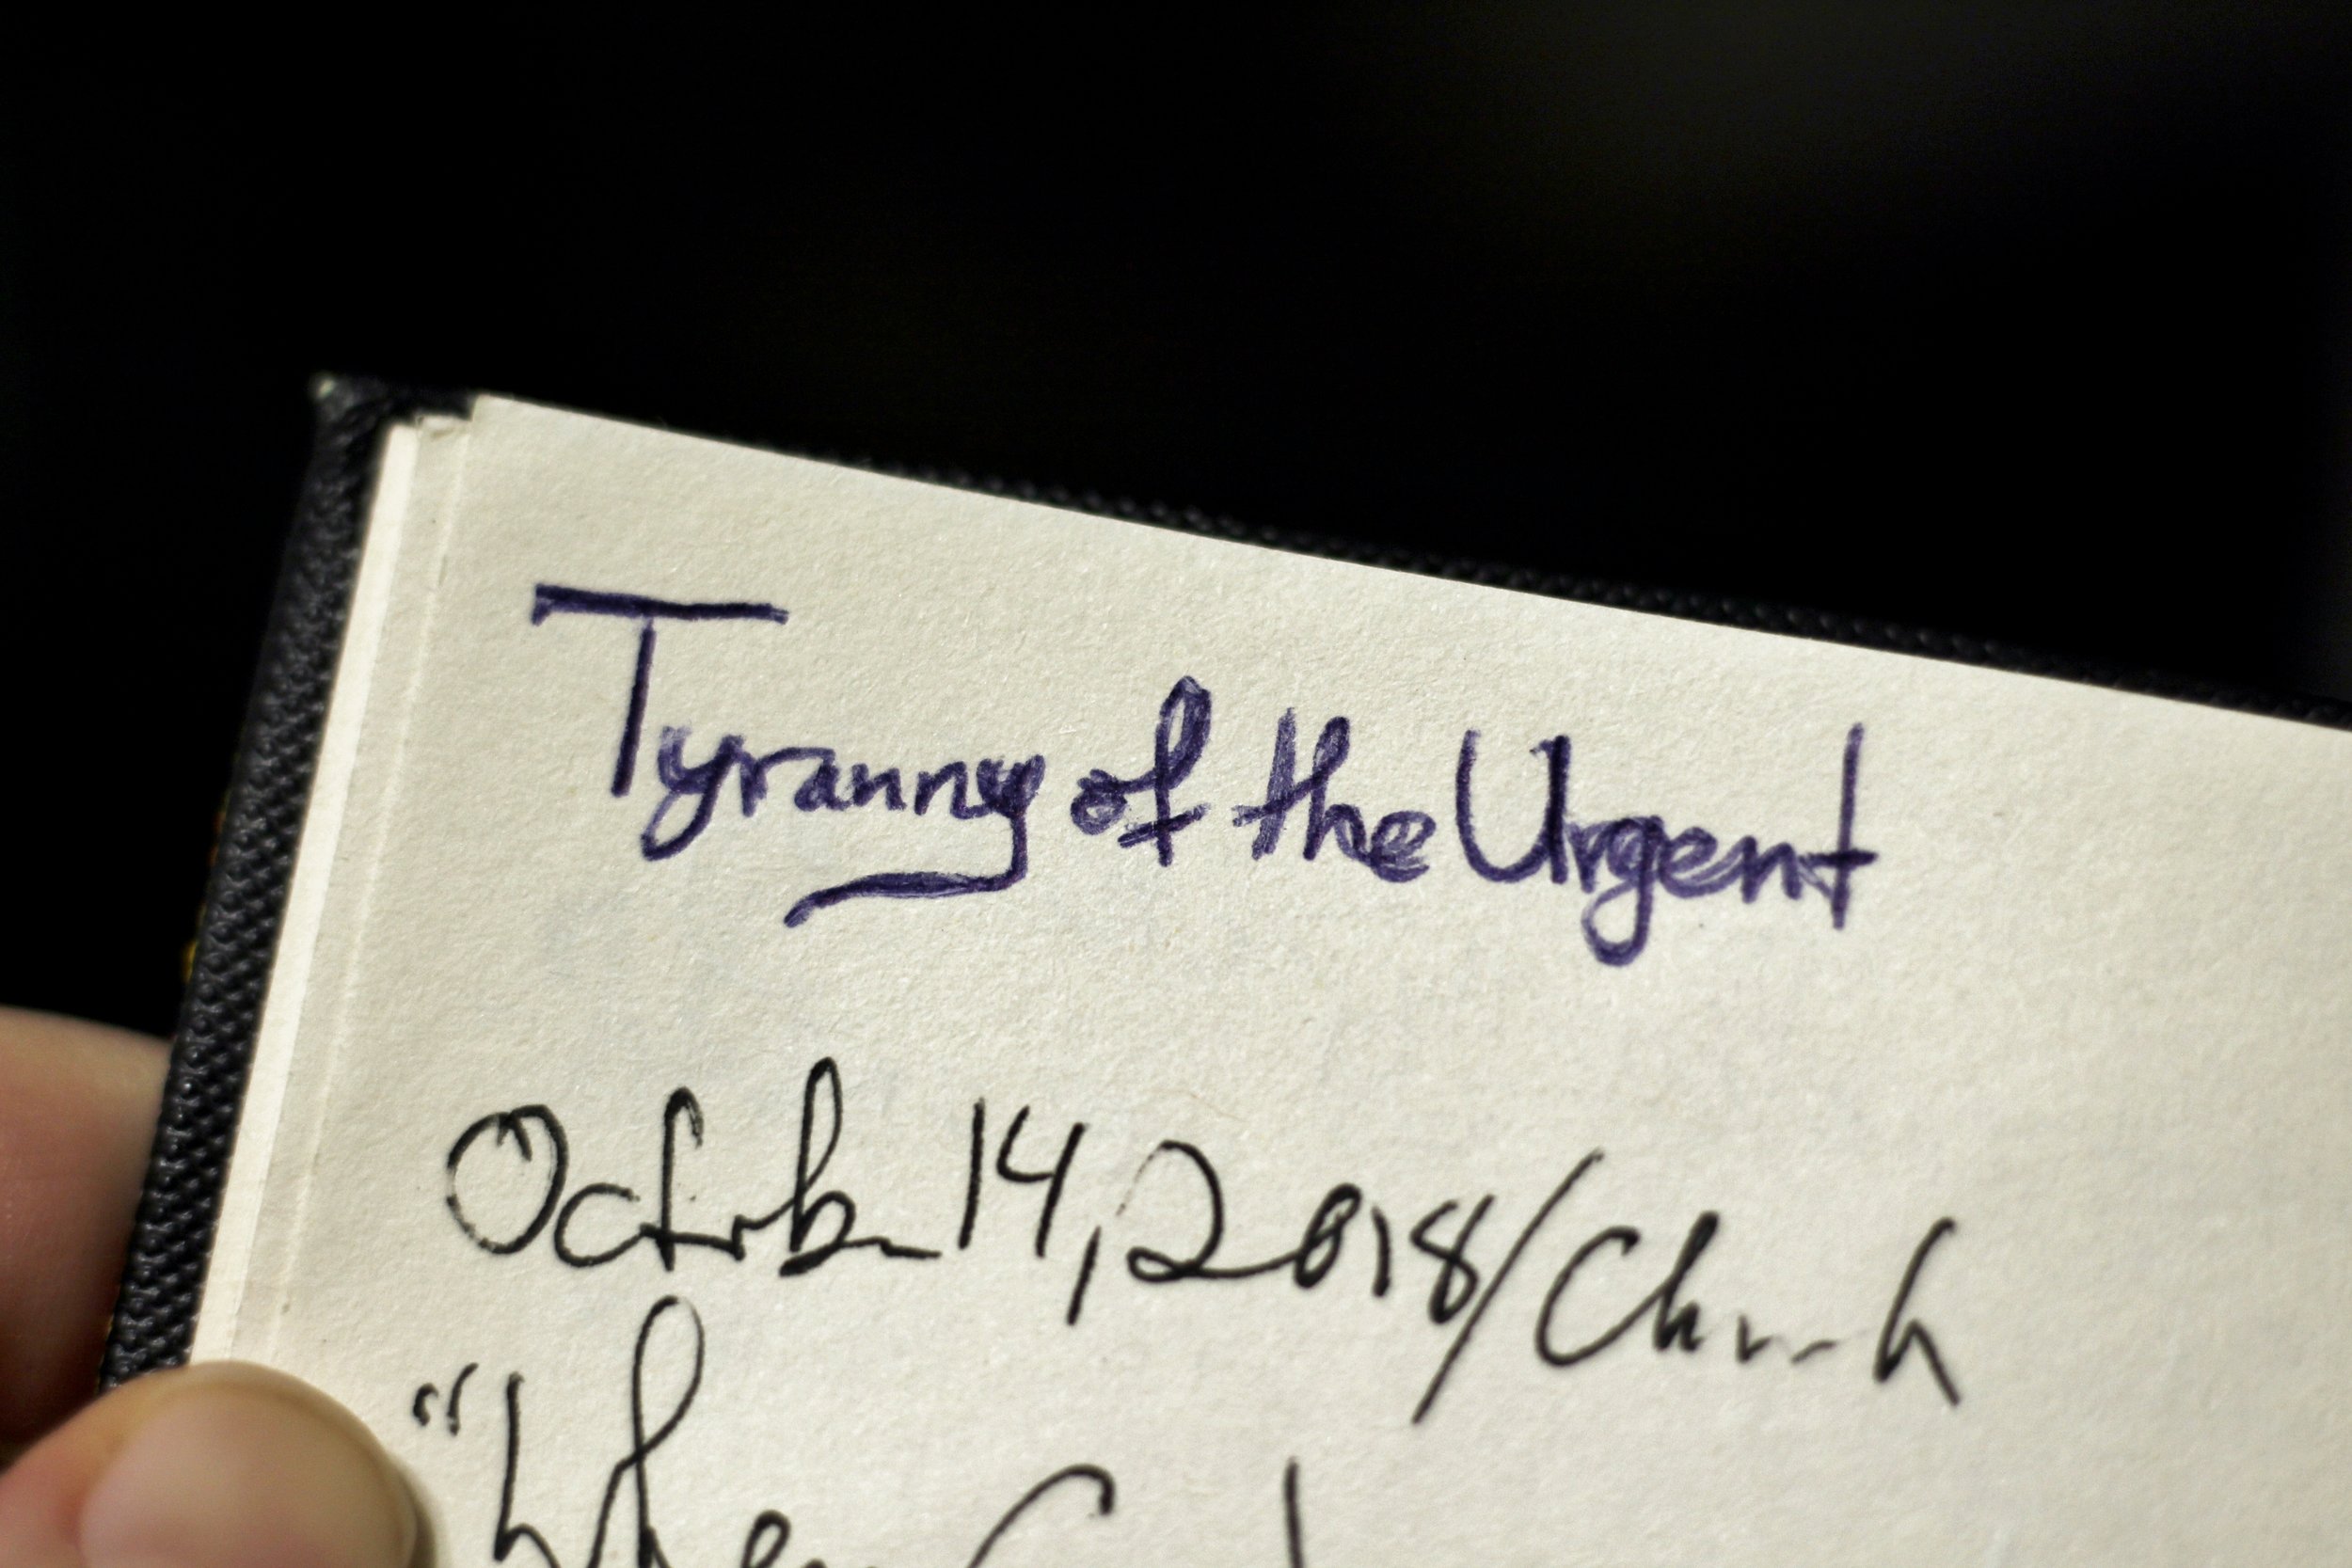 Tyranny of the Urgent
October 14, 2018/Church
"When